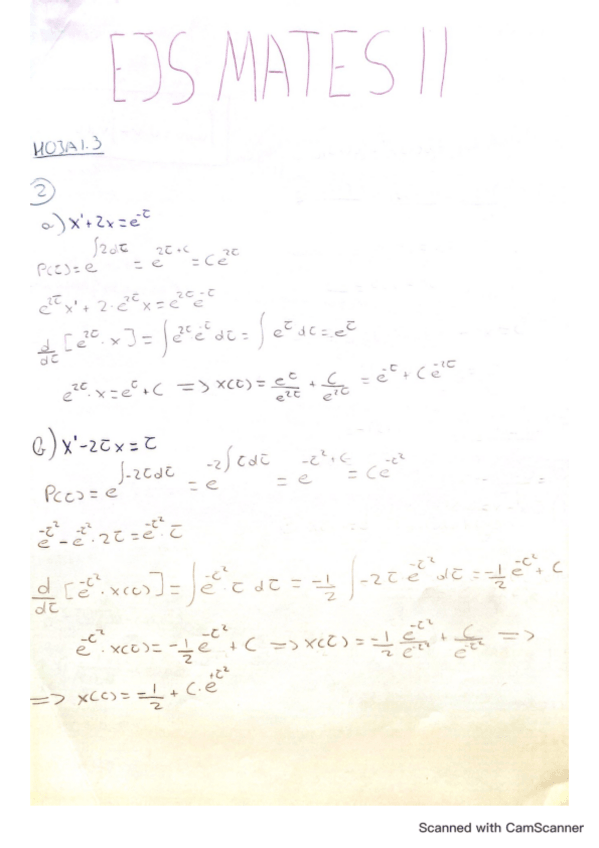 EJS MATES II
HOJA 1.3
②
a) x'+2x = e^{-t}
P(t) = e^{∫2dt} = e^{2t+c} = Ce^{2t}
e^{2t}x' + 2·e^{2t}x = e^{2t}e^{-t}
d/dt [e^{2t}·x] = ∫e^{2t}e^{-t}dt = ∫e^{t}dt = e^{t}
e^{2t}·x = e^{t}+C => x(t) = e^{t}/e^{2t} + C/e^{2t} = e^{-t} + Ce^{-2t}
b) x'-2tx = t
P(t) = e^{∫-2tdt} = e^{-2∫tdt} = e^{-t²+C} = Ce^{-t²}
e^{-t²} - e^{-t²}·2t = e^{-t²}·t
d/dt [e^{-t²}·x(t)] = ∫e^{-t²}·t dt = -1/2 ∫-2t e^{-t²}dt = -1/2 e^{-t²} + C
e^{-t²}·x(t) = -1/2 e^{-t²} + C => x(t) = -1/2 e^{-t²}/e^{-t²} + C/e^{-t²} =>
=> x(t) = -1/2 + C·e^{+t²}
Scanned with CamScanner